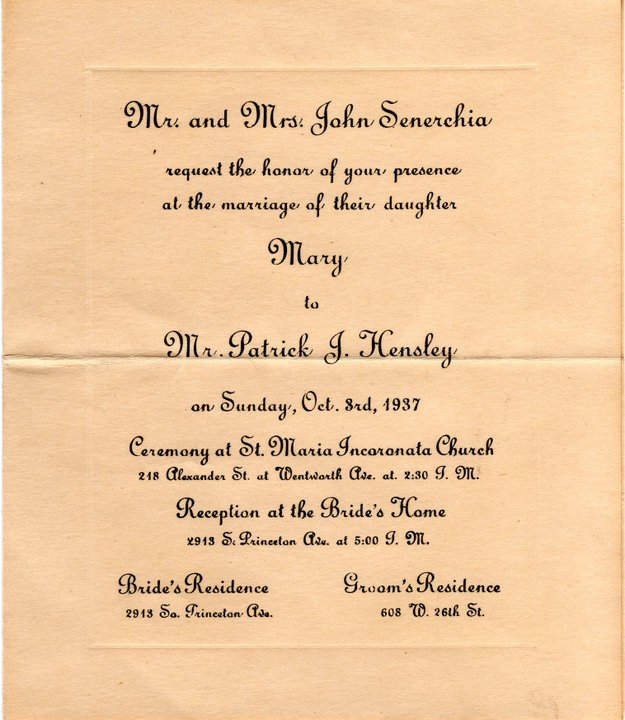 Mr. and Mrs. John Senerchia
request the honor of your presence
at the marriage of their daughter
Mary
to
Mr. Patrick J. Hensley
on Sunday, Oct. 3rd, 1937
Ceremony at St. Maria Incoronata Church
218 Alexander St. at Wentworth Ave. at 2:30 P. M.
Reception at the Bride's Home
2913 S. Princeton Ave. at 5:00 P. M.
Bride's Residence
2913 So. Princeton Ave.
Groom's Residence
608 W. 26th St.